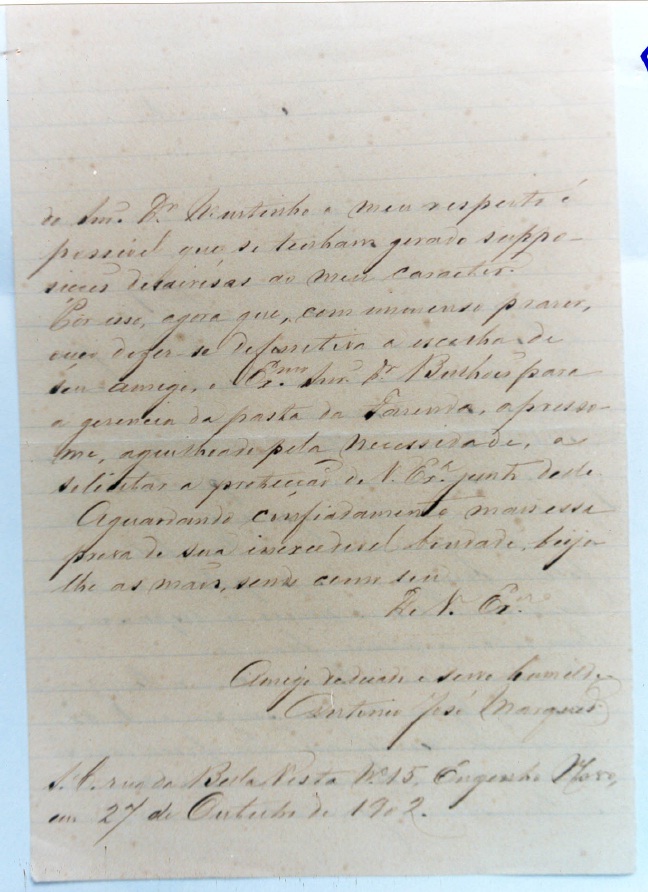 do Snr. Dr. Murtinho a meu respeito é
possivel que se tenham gerado suppo-
sições desairósas ao meu caracter.
Por isso, agora que, com immenso prazer,
ouço dizer se definitiva a escolha de
seu amigo, o Exmo. Snr. Dr. Bulhões para
a gerencia da pasta da Fazenda, apresso-
me, aguilhoado pela necessidade, a
solicitar a protecção de V. Exa. junto deste.
Aguardando confiadamente mais essa
prova de sua inexcedivel bondade, beijo-
lhe as mãos, sendo como sou
De V. Exa.
Amigo dedicado e servo humilde
Antonio José Marques
S. C. rua da Bella Vista No. 15, Engenho Novo,
em 27 de Outubro de 1902.